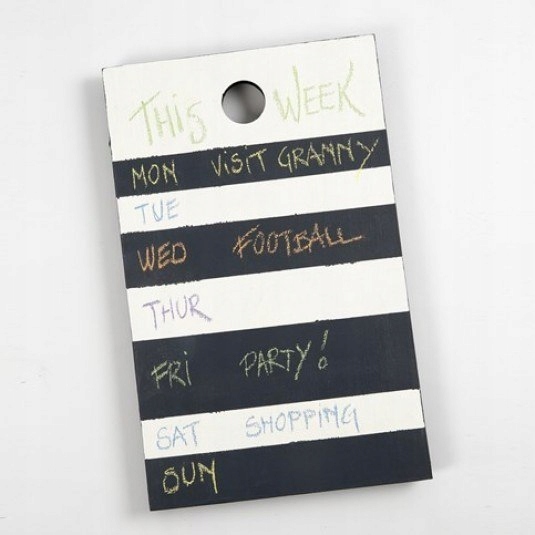 THiS WEEK
MON ViSiT GRANNY
TUE
WED FOOTBALL
THUR
FRi PARTY!
SAT SHOPPING
SUN